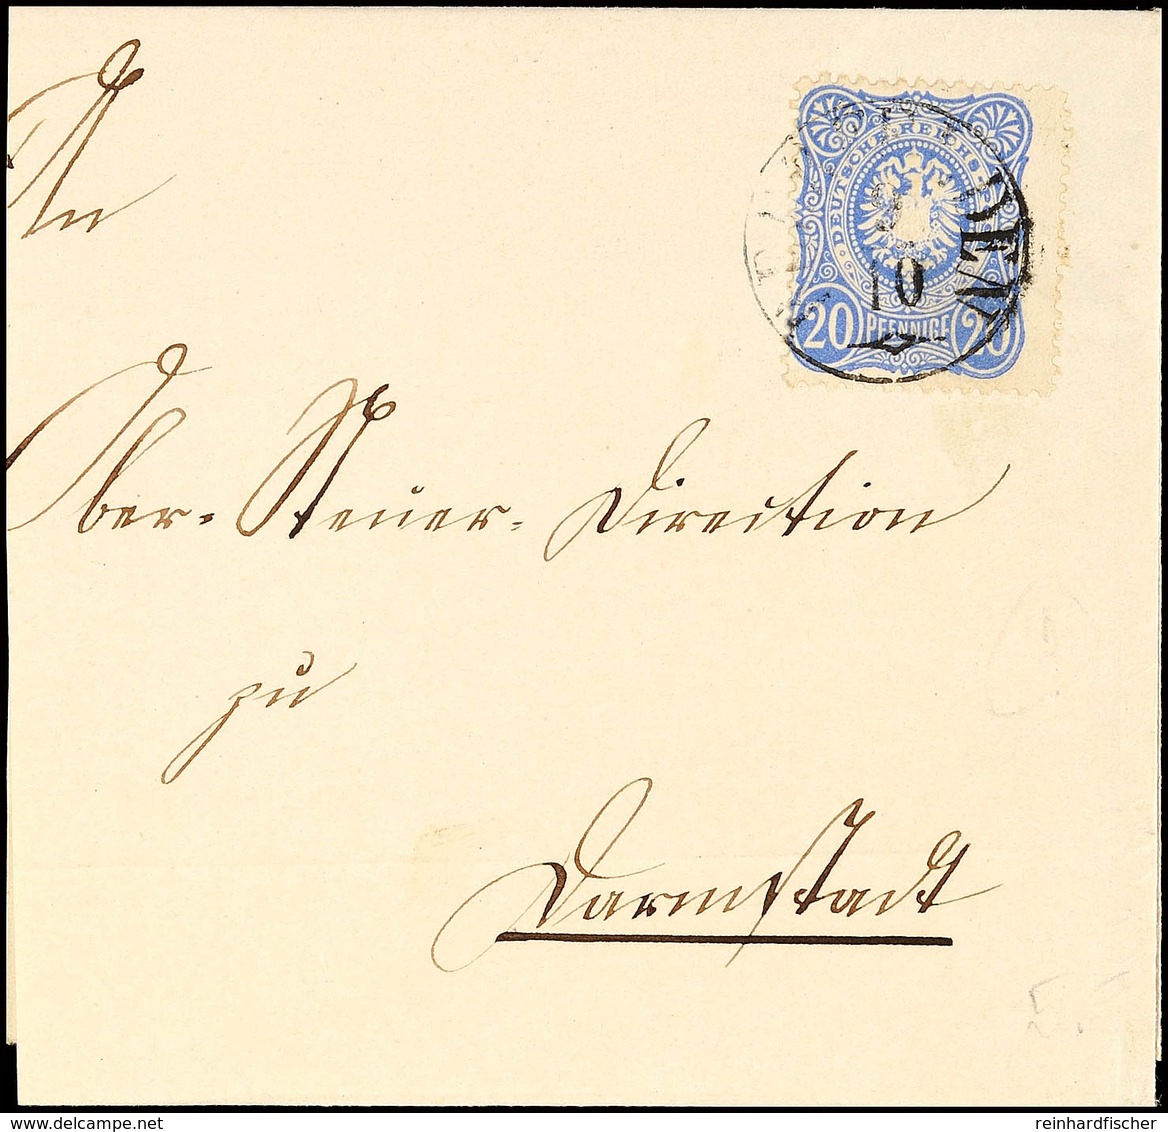 An
Ober-Steuer-Direction
zu
Darmstadt
DEUTSCHE·REICHS·
20 PFENNIGE 20
9
10
DEN
delcampe.net
reinhardfischer